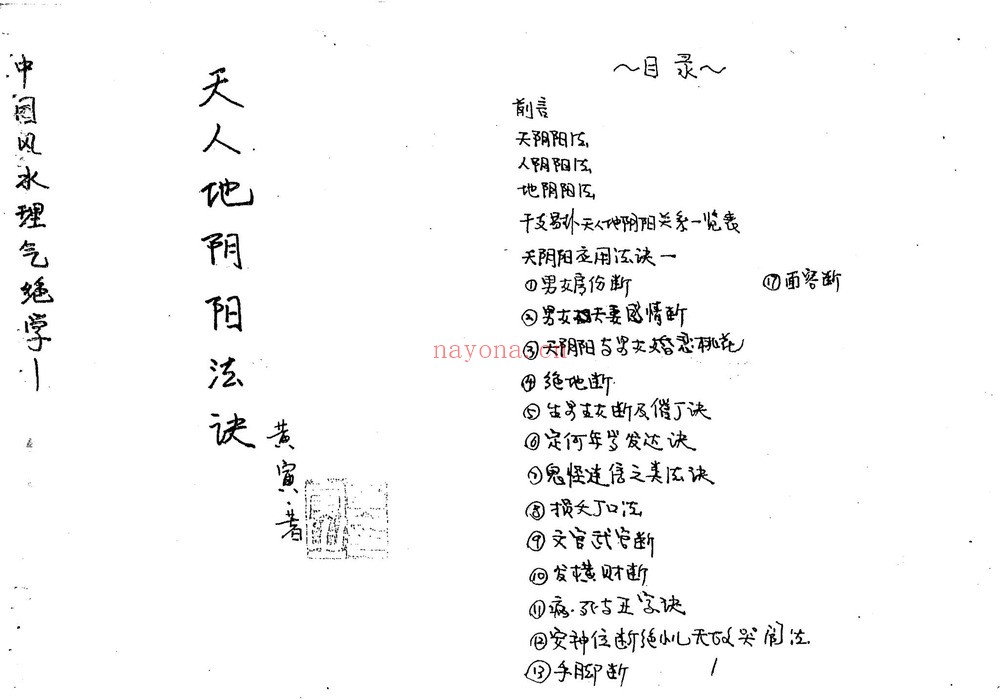 中国风水理气绝学一
天人地阴阳法诀
黄寅·著
～目录～
前言
天阴阳法
人阴阳法
地阴阳法
干支易卦天人地阴阳关系一览表
天阴阳应用法诀一
①男女房份断
②男女夫妻感情断
③天阴阳与男女婚恋桃花
④绝地断
⑤生男生女断及催丁诀
⑥定何年岁发达诀
⑦鬼怪迷信之类法诀
⑧损夭丁口法
⑨文官武官断
⑩发横财断
⑪病.死与正字诀
⑫安神位断绝小儿无故哭闹法
⑬手脚断
⑰面容断
1
nayona.cn